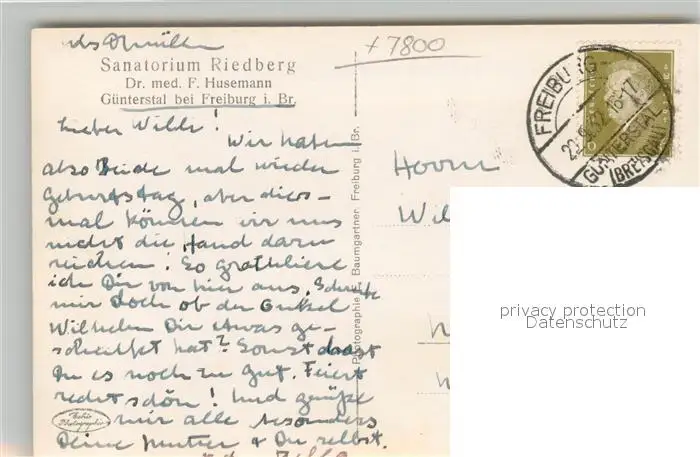 + 7800
Sanatorium Riedberg
Dr. med. F. Husemann
Günterstal bei Freiburg i. Br.
FREIBURG
GÜNTERSTAL
(BREISGAU)
16-17
Lieber Willi!
Wir haben
also Beide mal wieder
Geburtstag, aber dies-
mal können wir uns
nicht die Hand dazu
reichen! So gratuliere
ich Dir von hier aus. Schreibe
mir doch ob der Onkel
Wilhelm Dir etwas ge-
schenkt hat? Sonst
Du es noch zu gut. Feiert
recht schön! Und grüsse
mir alle besonders
Deine Mutter + Du selbst.
Herrn
Wil
Photographie Baumgartner, Freiburg i. Br.
Echte
Photographie
privacy protection
Datenschutz